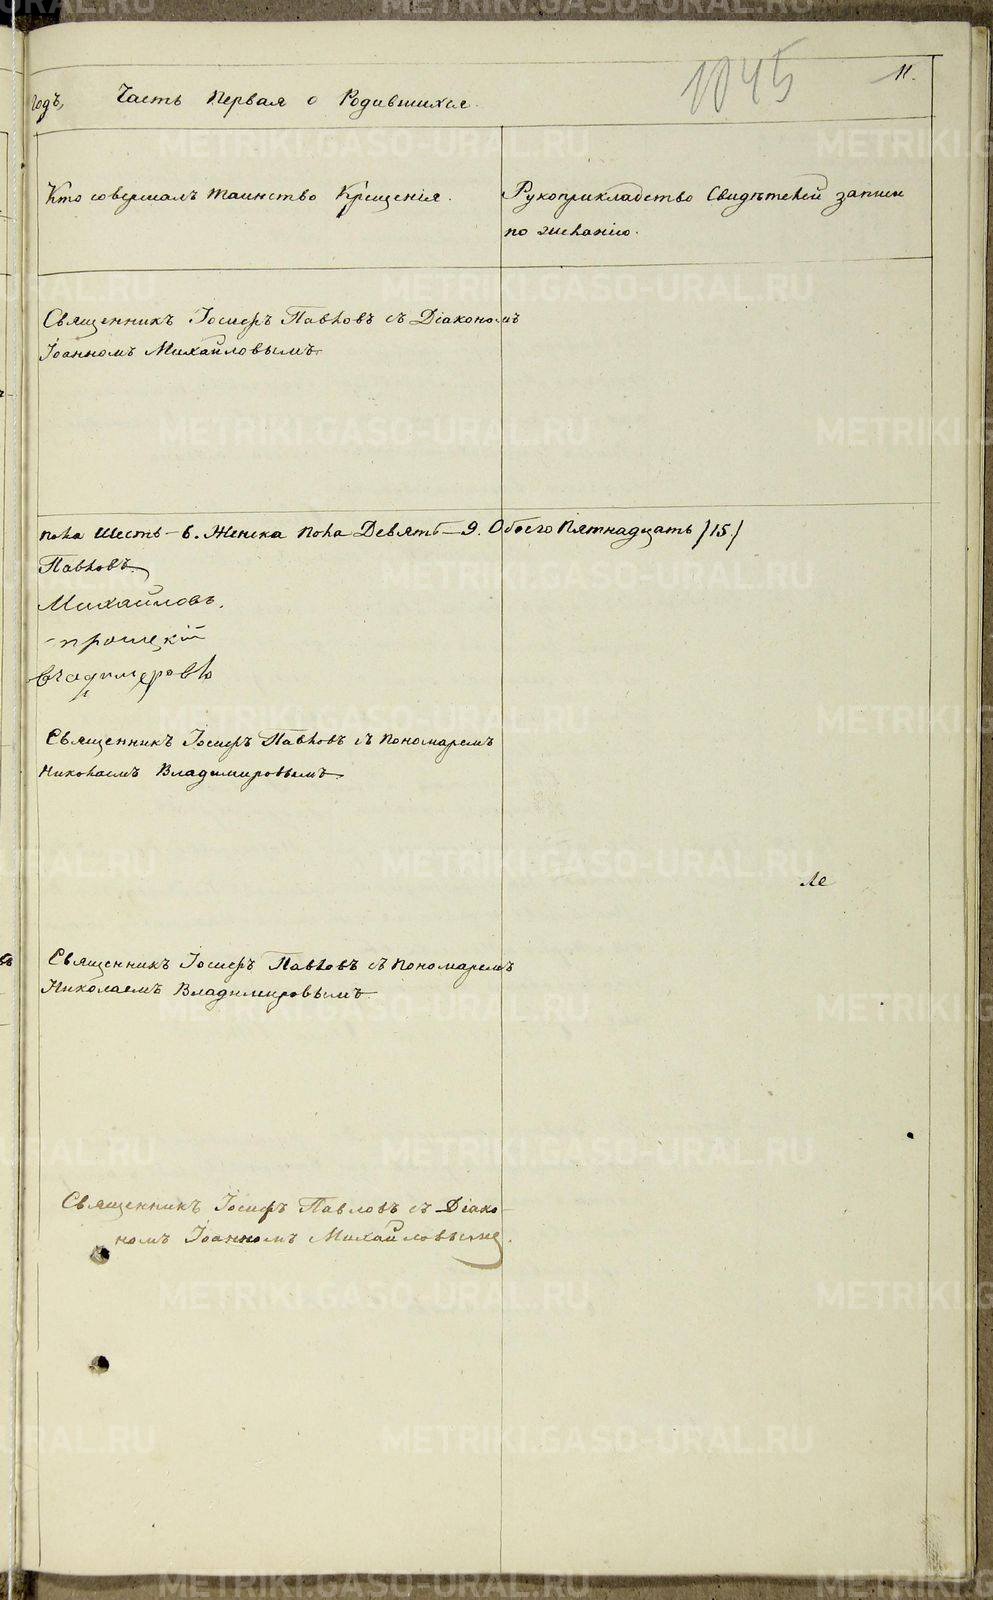 годъ, Часть первая о Родившихся. 1045 11.
Кто совершалъ таинство Крещенія.
Рукоприкладство Свидѣтелей записи
по желанію.
Священникъ Іосифъ Павловъ съ Діакономъ
Іоанномъ Михайловымъ
пола Шесть – 6. Женска пола Девять – 9. Обоего Пятнадцать /15/
Павловъ
Михайловъ.
Священникъ Іосифъ Павловъ съ Пономаремъ
Николаемъ Владимировымъ
Священникъ Іосифъ Павловъ съ Пономаремъ
Николаемъ Владимировымъ
Священникъ Іосифъ Павловъ съ Діако-
номъ Іоанномъ Михайловымъ.
METRIKI.GASO-URAL.RU